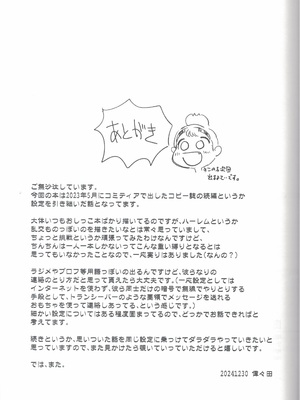 あとがき
ご無沙汰しています。
今回の本は2023年5月にコミティアで出したコピー誌の続編というか
設定を引き継いだ話となってます。
大体いつもおしっこ本ばかり描いてるのですが、ハーレムというか
乱交ものっぽいのを描きたいなとは常々思っていまして、
ちょっと挑戦というか頑張ってみたわけなんですけど、
ちんちんは一人一本しかないってこんな重い縛りとなるとは
思ってもいなかったことなので、一応実りはありました(なんの?)
ラジメやプロフ等用語っぽいの出るんですけど、彼らなりの
連絡のとり方だと思って貰えたら大丈夫です。(一応設定としては
インターネットを使わず、彼ら茶士だけの暗号で無線でやりとりする
手段として、トランシーバーのような要領でメッセージを送れる
おもちゃを使って連絡しあってる、という感じです。)
細かい設定についてはある程度固まってるので、どっかでお話できればと
考えてます。
続きというか、思いついた話を同じ設定に乗っけてダラダラやっていきたいと
思っていますので、また見かけたら覗いていっていただけると嬉しいです。
では、また。
20241230